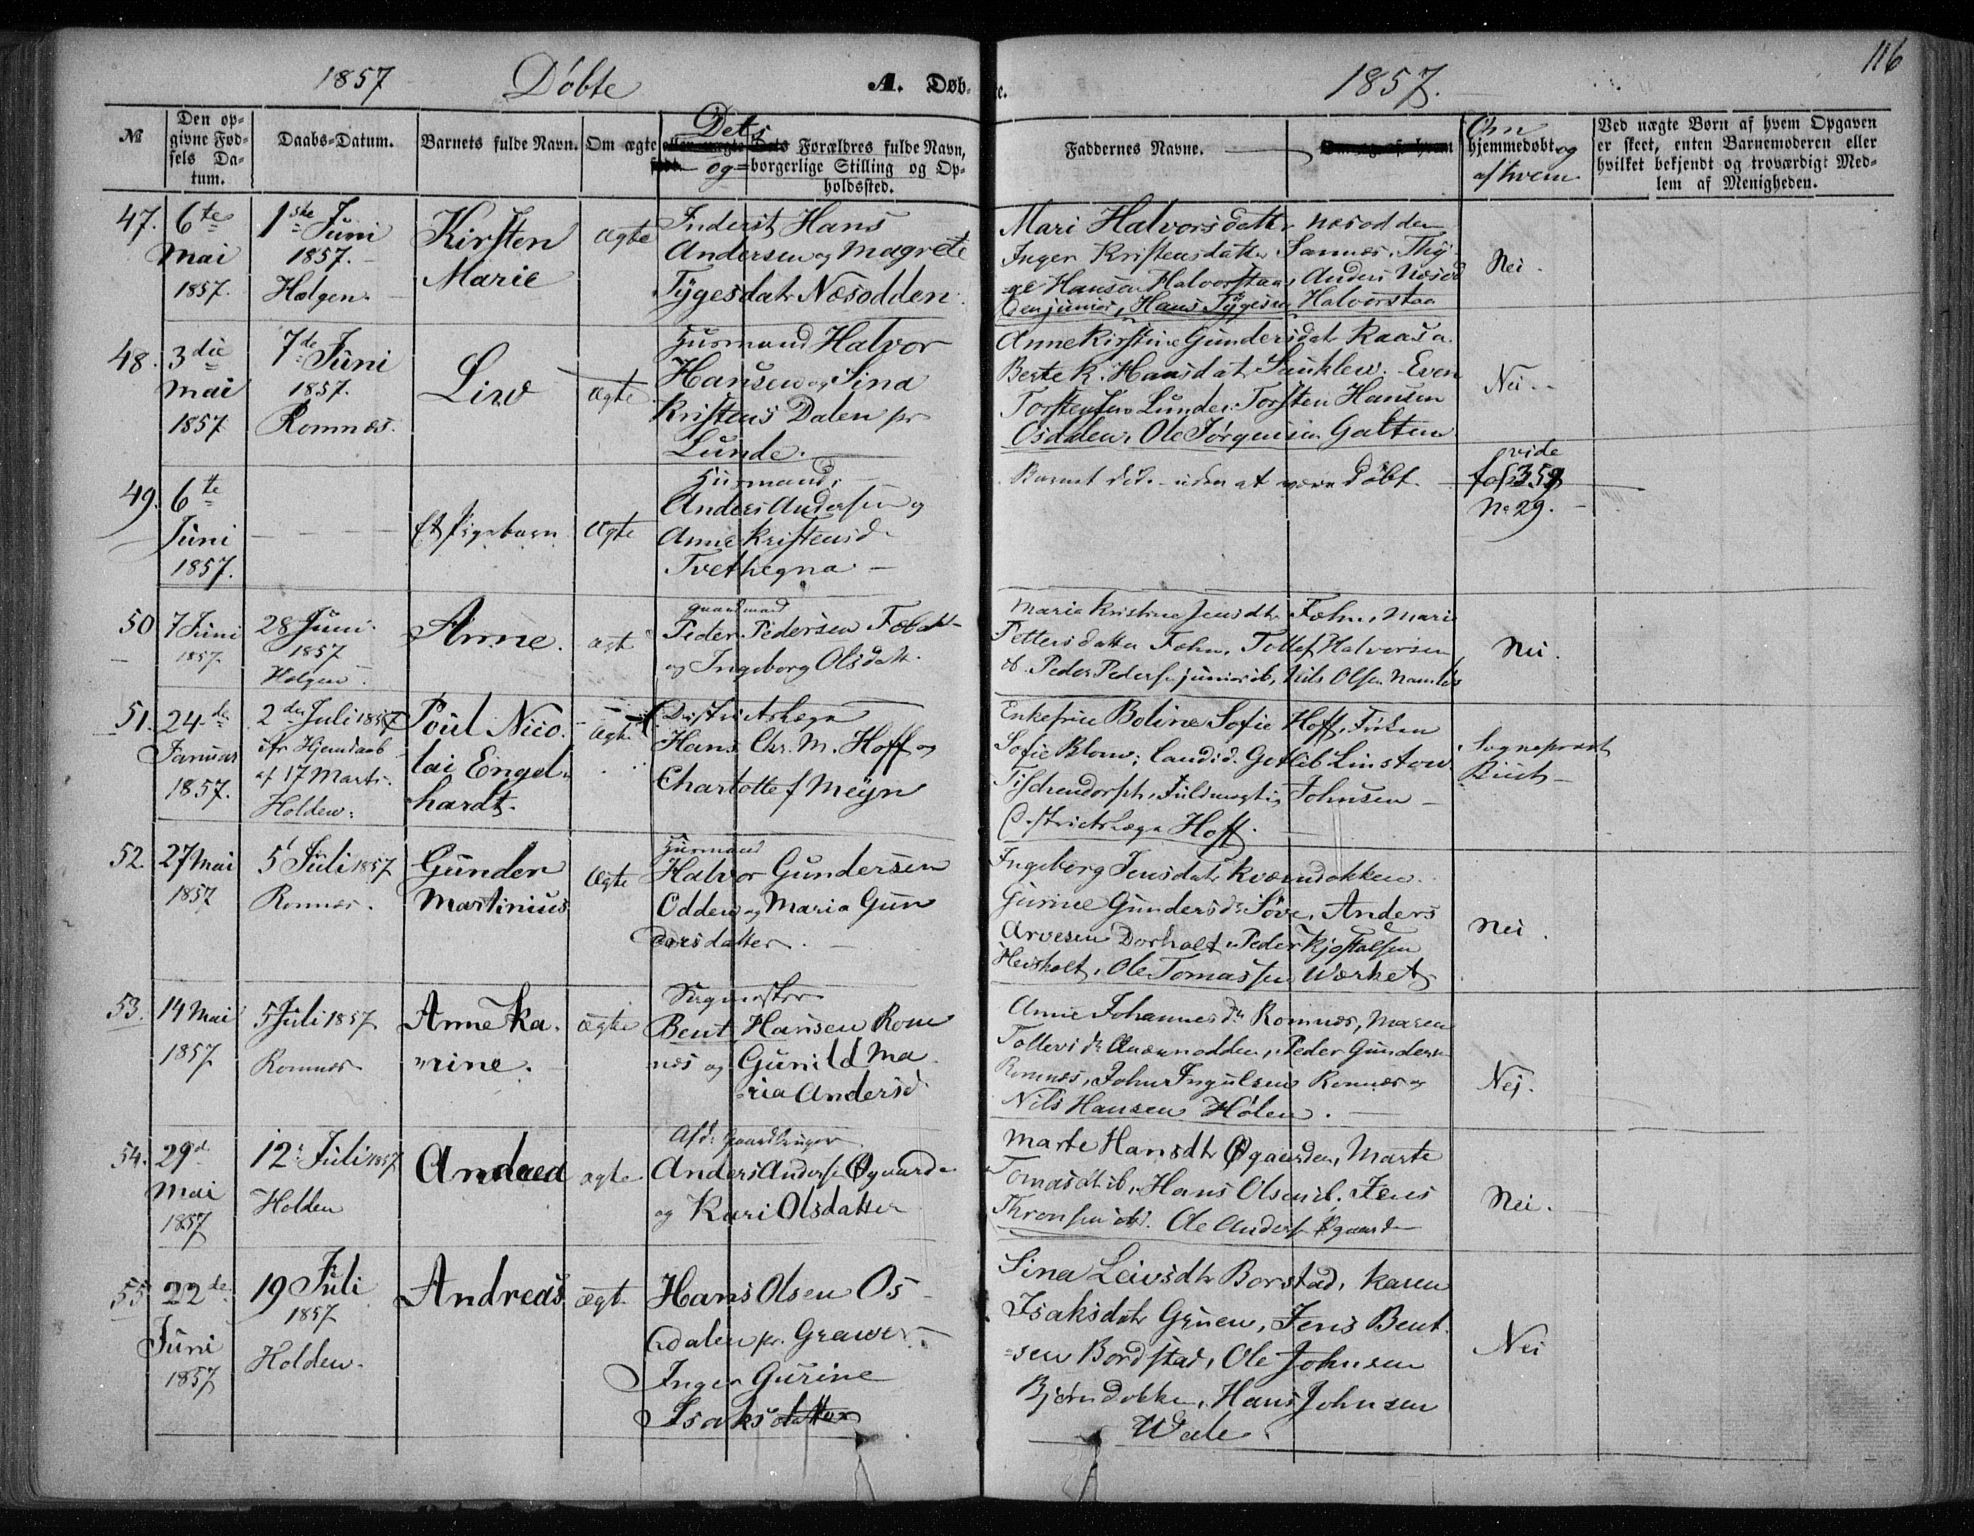 1857 Döbte A. Døb- e. 1857. 116
№
Den op-
givne Fød-
sels Da-
tum.
Daabs-Datum.
Barnets fulde Navn.
Om ægte
Dets
eller uægte Dets Forældres fulde Navn,
og borgerlige Stilling og Op-
holdssted.
Faddernes Navne.
Om
hjemmedøbt og
af hvem
Ved uægte Børn af hvem Opgaven
er skeet, enten Barnemoderen eller
hvilket bekjendt og troværdigt Med-
lem af Menigheden.
47.
6te
Mai
1857.
1ste Juni
1857.
Helgen
Kirsten
Marie
Ægte
Inderst Hans
Andersen og Magrete
Tygesdatr Næsodden
Mari Halvorsdatter Næsodden
Inger Kristensdatter Sannæs, Thy-
ge Hansen Halvorstaa, Anders Næsod
den junior, Hans Tygesen Halvorstaa
Nei.
48.
3die
Mai
1857
7de Juni
1857.
Romnæs.
Liw
Ægte
Husmand Halvor
Hansen og Sina
Kristens Dalen pr
Lunde.
Anne Kirstine Gundersdatr Raasa.
Berte K. Hansdatr Sauklew. Even
Torstensen Lunde. Torsten Hansen
Osdalen, Ole Jørgensen Galten
Nei.
49.
6te
Juni
1857.
Et Pigebarn
Ægte
Husmand
Anders Andersen og
Anne Kristensd.
Tvethegna.
Barnet døde uden at være døbt.
vide
fol 359
No 29.
50
7 Juni
1857.
28 Juni.
1857
Helgen
Anne.
ægt
Gaardmand
Peder Pedersen
og Ingeborg Olsdatt.
Maria Kristine Jensdtr Fæhn, Mari
Pettersdatter Fæhn, Tollef Halvorsen
ib. Peder Peders. junior ib, Nils Olsen Namløs
Nei.
51.
24de
Januar
1857.
2den Juli 1857
efr Hjemdaab
af 17 Marts.
Holden.
Poul Nico-
lai Engel-
hardt.
Ægte
Districtslæge
Hans Chr. M. Hoff og
Charlotte f Meyn
Enkefrue Boline Sofie Hoff, Frøken
Sofie Blom; Candid. Gotleb Linstow
Tischendorph, Fuldmægtig Johnsen
Districtslæge Hoff.
Sognepræst
52.
27 Mai
1857
5 Juli 1857
Romnæs.
Gunder
Martinius
Ægte
Husmand
Halvor Gundersen
Odden og Maria Gun
dersdatter.
Ingeborg Jensdatr Kværndokken.
Gurine Gundersdr Søve, Anders
Arvesen Dorholt, Peder Kjøstolsen
Heisholt, Ole Tomassen Wærket
Nei.
53.
14 Mai
1857
5 Juli 1857
Romnæs
Anne Ka-
rine.
ægte
Sagmester
Bent Hansen Rom
næs og Gunild Ma
ria Andersd
Anne Johannesdr Romnæs, Maren
Tollevsdr, Peder Gundersen
Romnæs, John Ingulsen Romnæs og
Nils Hansen Hølen.
Nej.
54.
29d
Mai
1857
12. Juli 1857
Holden
Andrea
ægte
Afd. Gaardbruger
Anders Anders. Øgaarden
og Kari Olsdatter
Marte Hansdtr Øgaarden, Marte
Tomasdtr ib., Hans Olsen ib. Jens
Thronsen ibd. Ole Anders. Øgaarden
Nei.
55
22de
Juni
1857
19 Juli
1857
Holden.
Andreas
ægt.
Hans Olsen Os-
dalen pr. Grawer
Inger Gurine
Isaksdatter
Sina Leivsdtr Borstad, Karen
Isaksdatr Gruen, Jens Bent-
sen Bordstad, Ole Johnsen
Bjørndokke, Hans Johnsen
Wale.
Nei